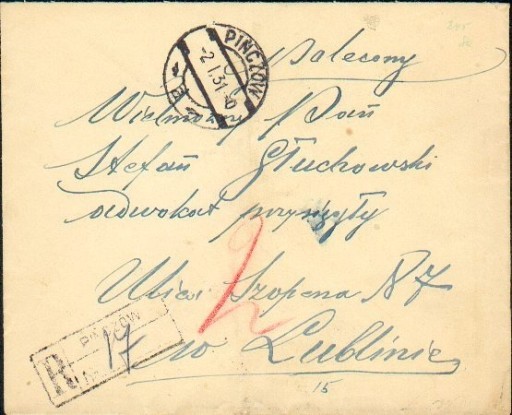 PIŃCZÓW
-2.I.31.-0
Polecony
Wielmożny Pan
Stefan Głuchowski
adwokat przysięgły
2
Ulica Szopena N 7
w Lublinie
R PIŃCZÓW
17
15